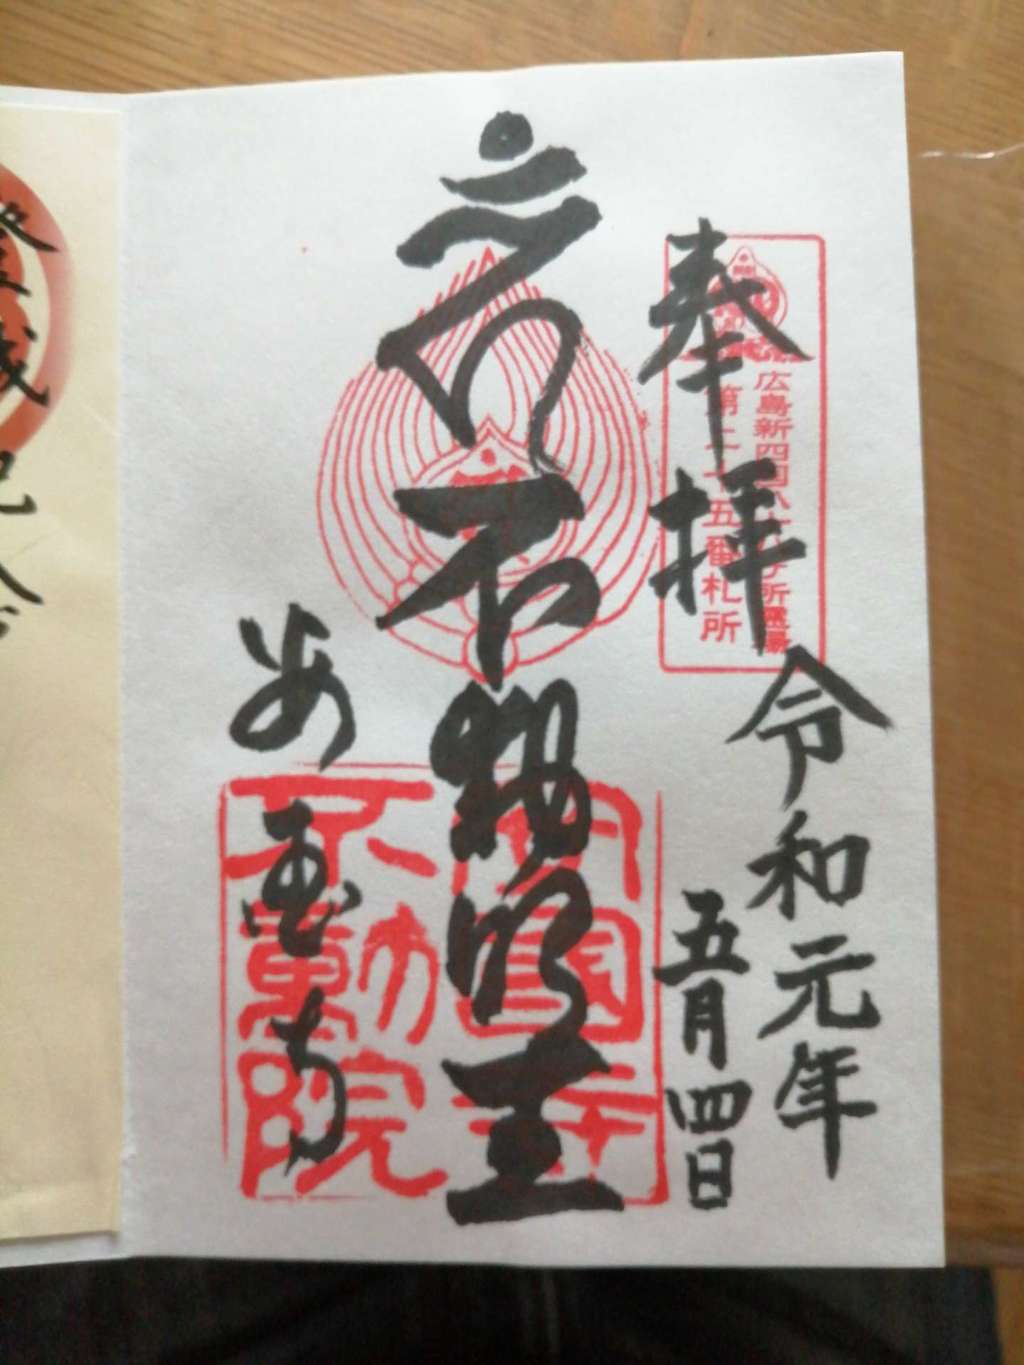 奉拝
広島新四国八十八ヶ所霊場
第二十五番札所
令和元年
五月四日
不動明王
安国寺
安國寺
不動院